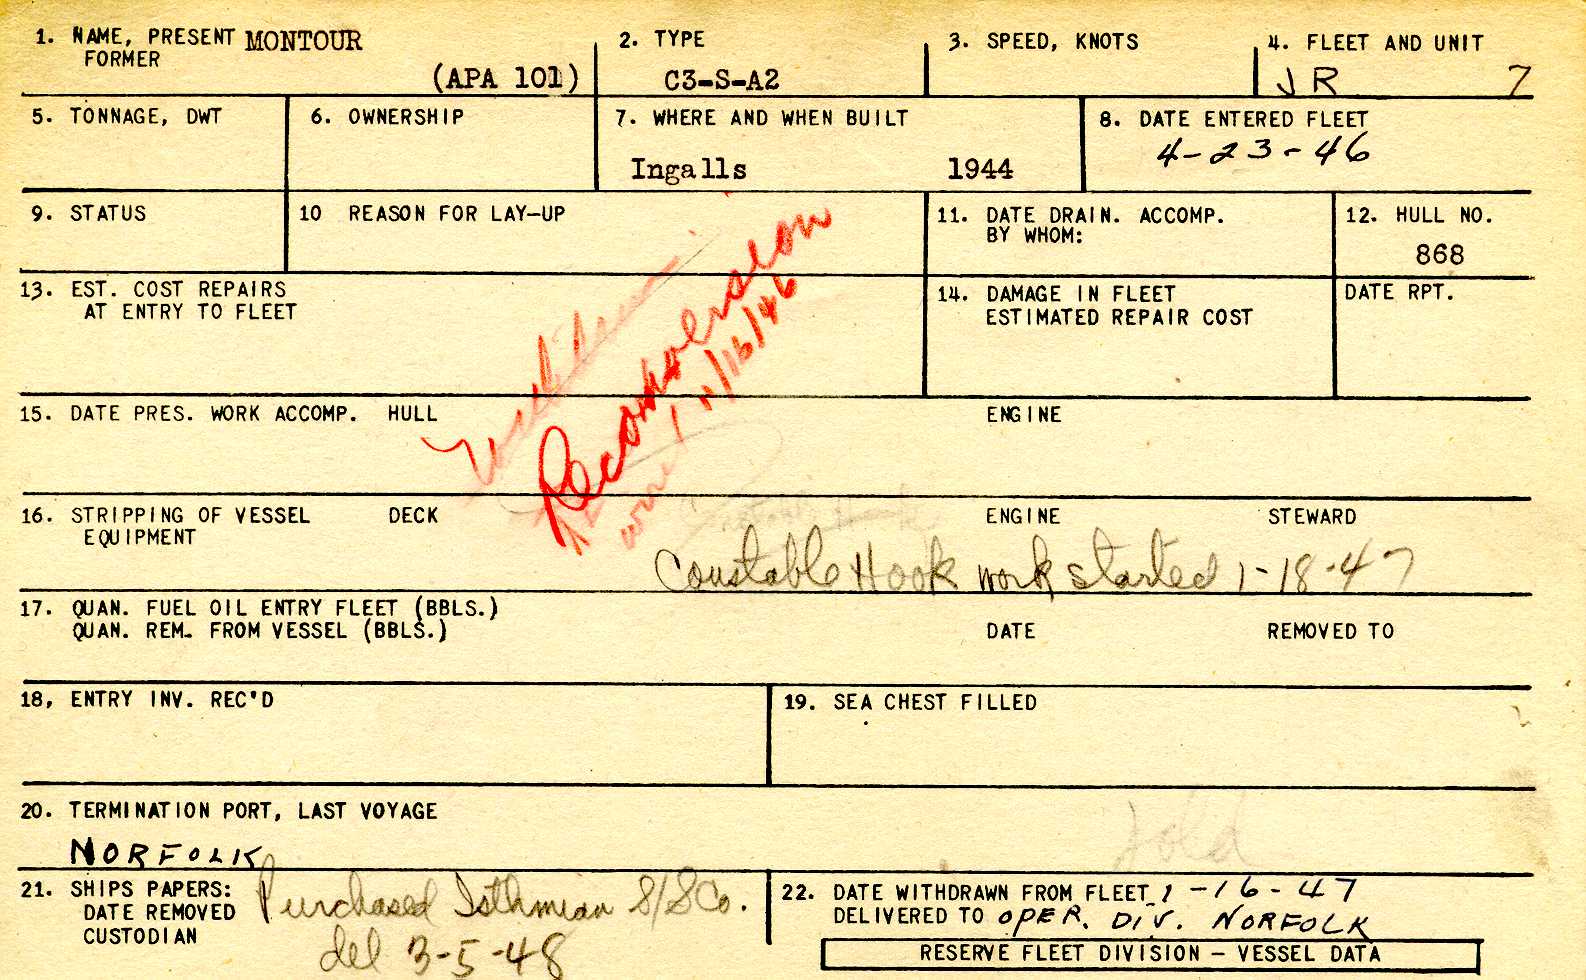 1. NAME, PRESENT MONTOUR
FORMER
(APA 101)
2. TYPE
C3-S-A2
3. SPEED, KNOTS
4. FLEET AND UNIT
JR 7
5. TONNAGE, DWT
6. OWNERSHIP
7. WHERE AND WHEN BUILT
Ingalls 1944
8. DATE ENTERED FLEET
4-23-46
9. STATUS
10 REASON FOR LAY-UP
11. DATE DRAIN. ACCOMP.
BY WHOM:
12. HULL NO.
868
13. EST. COST REPAIRS
AT ENTRY TO FLEET
Reconversion
11/16/46
14. DAMAGE IN FLEET
ESTIMATED REPAIR COST
DATE RPT.
15. DATE PRES. WORK ACCOMP. HULL ENGINE
16. STRIPPING OF VESSEL DECK ENGINE STEWARD
EQUIPMENT
Constable Hook work started 1-18-47
17. QUAN. FUEL OIL ENTRY FLEET (BBLS.)
QUAN. REM. FROM VESSEL (BBLS.) DATE REMOVED TO
18, ENTRY INV. REC'D
19. SEA CHEST FILLED
20. TERMINATION PORT, LAST VOYAGE
NORFOLK
Sold
21. SHIPS PAPERS:
DATE REMOVED
CUSTODIAN
Purchased Isthmian S/S Co.
del 3-5-48
22. DATE WITHDRAWN FROM FLEET 1-16-47
DELIVERED TO OPER. DIV. NORFOLK
RESERVE FLEET DIVISION – VESSEL DATA